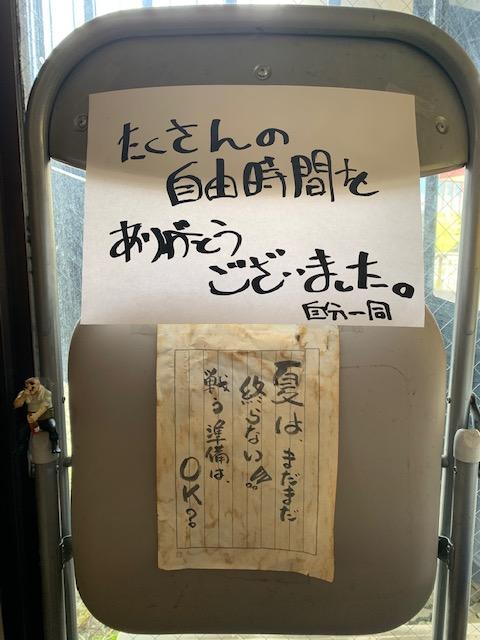 たくさんの
自由時間を
ありがとう
ございました。
自分一同
夏は、まだまだ
終らない!!
戦う準備は、
OK?